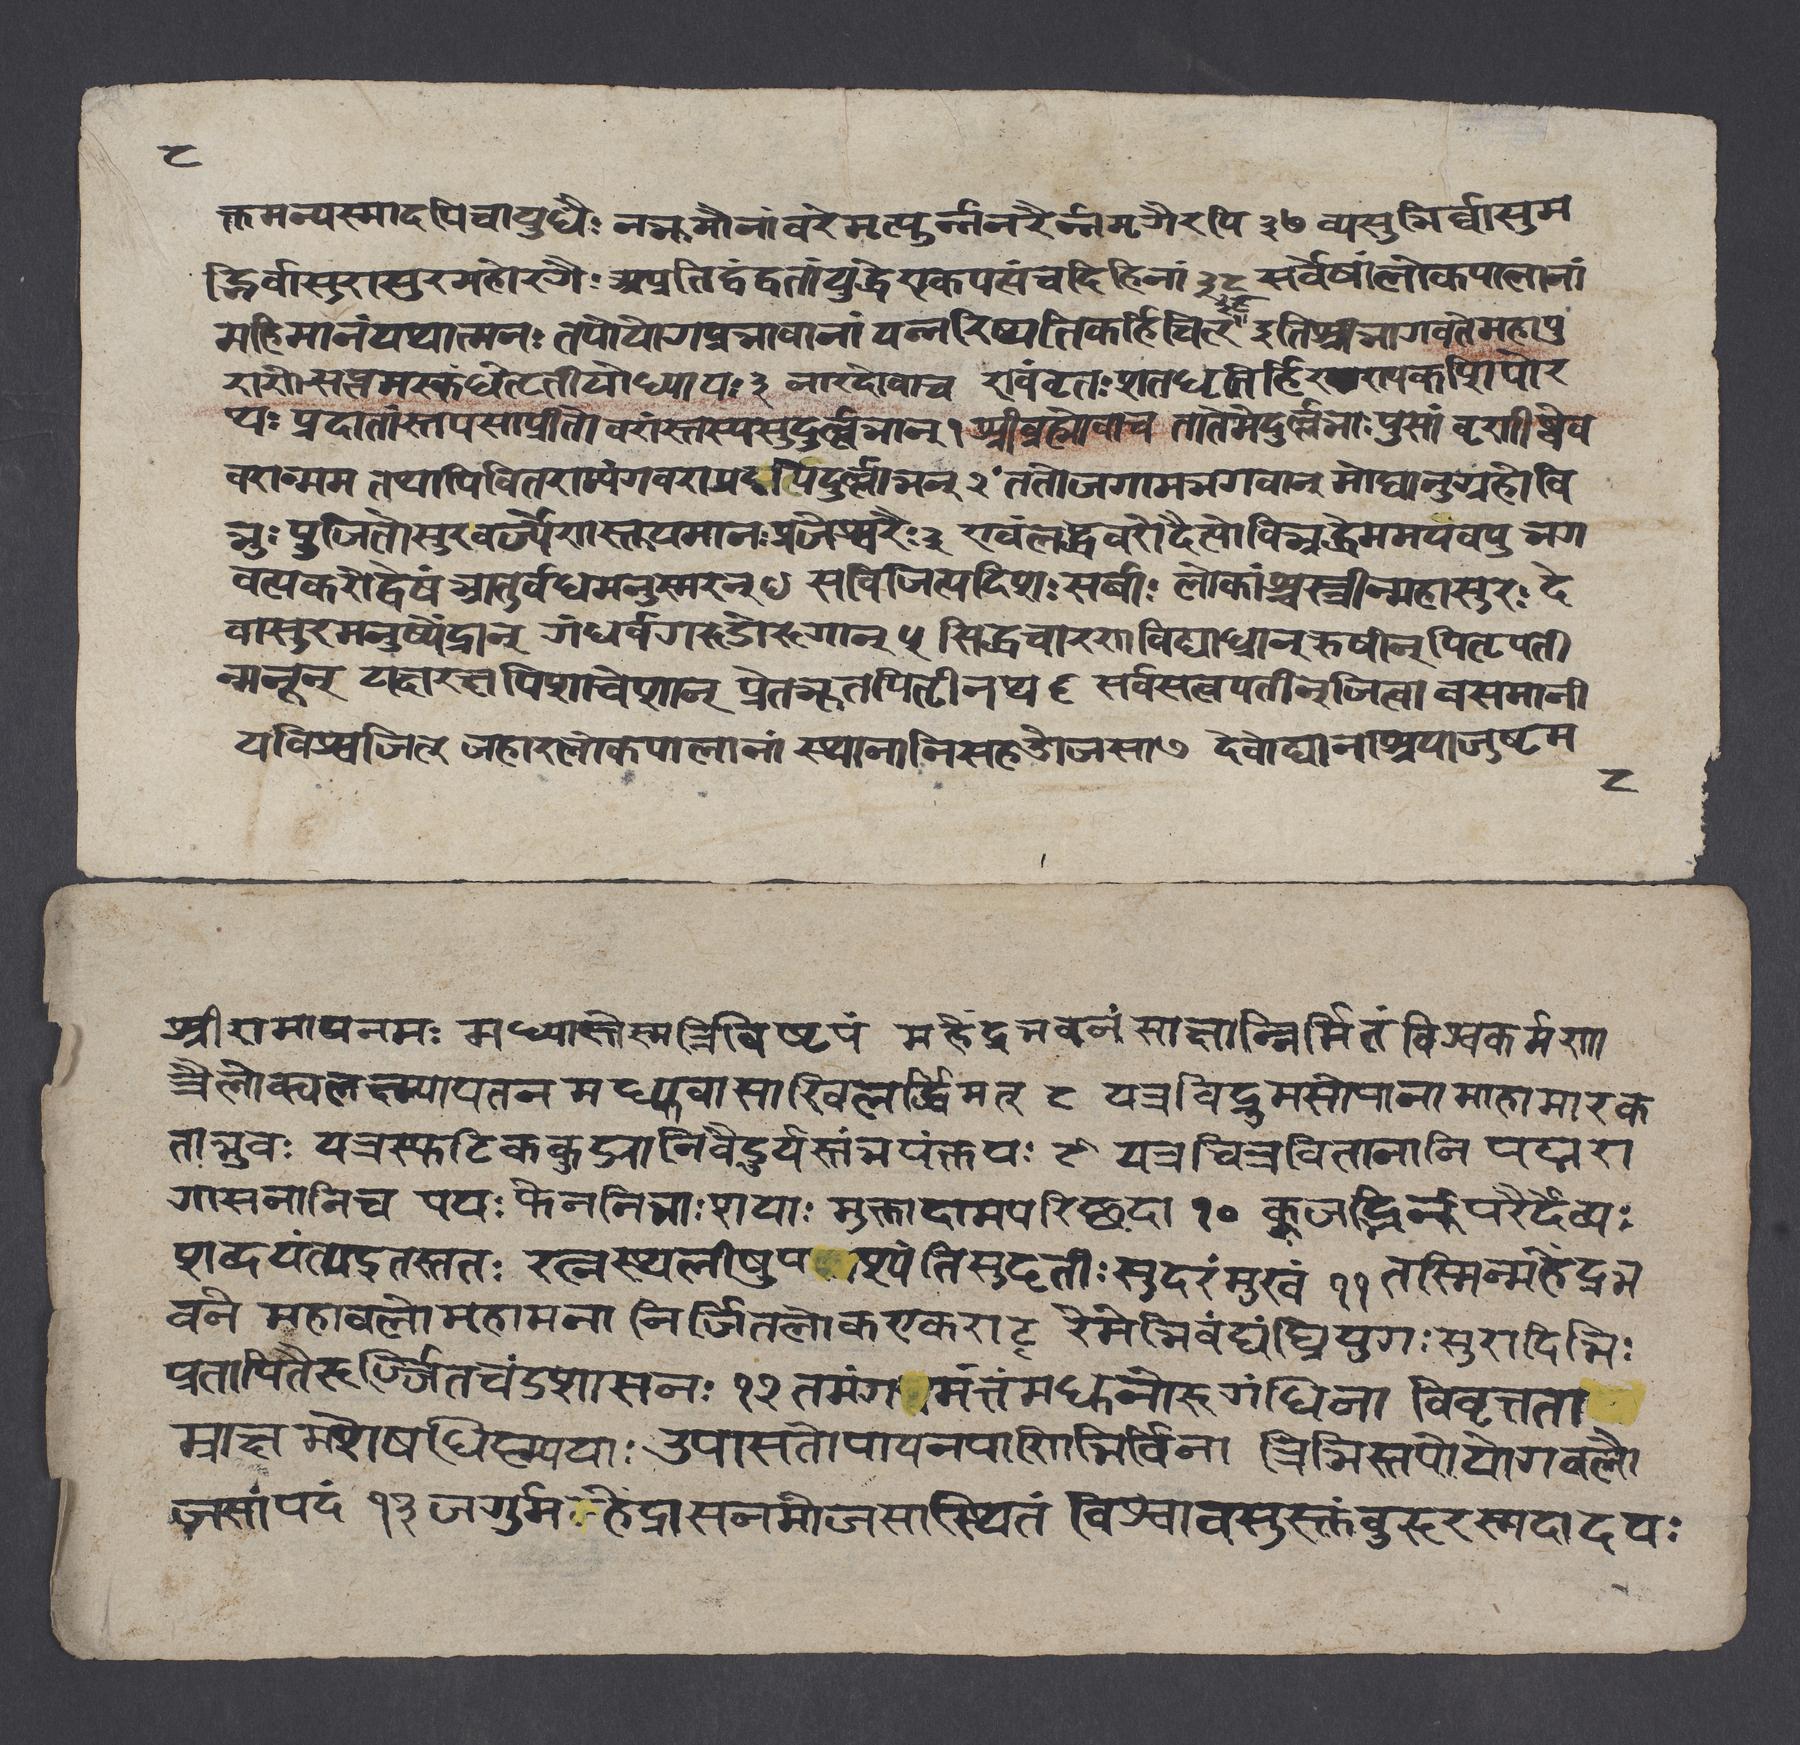 ८
क्तमन्यस्मादपिचायुधैः नभूमौनांवरेमृत्युर्न्ननरैर्न्नमृगैरपि ३७ व्यसुभिर्व्वासुम
द्भिर्वासुरासुरमहोरगैः अप्रतिद्वंद्वतांयुद्धेएकपसंचदिहिनां ३८ सर्वेषांलोकपालानां
महिमानंयथात्मनः तपोयोगप्रभावानां यन्नरिष्यतिकर्हिचित् ३९ इतिश्रीभागवतेमहापु
राणेसप्तमस्कंधेतृतीयोध्यायः ३ नारदोवाच एवंवृतः शतधृतिर्हिरण्यकशिपोर
थः प्रदातांस्तपसाप्रीतो वरांस्तस्यसुदुर्ल्लभान् १ श्रीब्रह्मोवाच तातेमेदुर्ल्लभाः पुसां वृणीषेव
वरान्मम तथापिवितराम्यंगवरायद्यपिदुर्ल्लभान् २ ततोजगामभगवान् मोघानुग्रहोवि
भुः पुजितोसुरवर्ज्येणस्तूयमानः प्रजेश्वरैः ३ एवंलब्धवरोदैत्योविभ्रद्धेममयंवपु भग
वत्यकरोद्वेषं भ्रातुर्वधमनुस्मरन् ४ सविजित्यदिशः सर्बाः लोकांश्चस्त्रीन्महासुरः दे
वासुरमनुष्येंद्रान् गंधर्वगरुडोरुगान् ५ सिद्धचारणविद्याध्रान् रुषीन् पितृपती
न्मनून् यक्षरक्षपिशाचेशान् प्रेतभूतपितीनथ ६ सर्वसत्वपतीन्जित्वा वसमानी
यविश्वजित् जहारलोकपालानां स्थानानिसहओजसा ७ देवोद्यानाश्रयाजुष्टम
८
श्रीरामायनमः मध्यास्तेस्मत्रिविष्टपं महेंद्रभवनं साक्षान्निर्मितं विश्वकर्मणा
त्रैलोक्यलक्ष्म्यापतन मध्युवासाखिलर्द्धिमत् ८ यत्रविद्रुमसोपाना माहामारक
ताभुवः यत्रस्फटिककुड्यानिवैदुर्यस्तंभपंक्तयः ९ यत्रचित्रवितानानि पद्मरा
गासनानिच पयः फेननिभाः शयाः मुक्तादामपरिछदा १० कुजद्भिर्न्नूपरैर्देव्यः
शब्दयंत्यइतस्ततः रत्नस्थलीषुप श्यंतिसुदतीः सुदरंमुखं ११ तस्मिन्महेंद्रभ
वने महाबलोमहामना निर्जितलोकएकराट् रेमेभिवंद्यंघ्रियुगः सुरादिभिः
प्रतापितैरूर्ज्जितचंडशासनः १२ तमंग मंत्तंमधूनोरुगंधिना विवृत्तता
म्राक्षमशेषधिष्ण्यपाः उपासतोपायनपाणिभिर्विना त्रिभिस्तपोयोगबलौ
जसांपदं १३ जगुर्म हेंद्रासनमोजसास्थितं विश्वावसुस्तंबुरूरस्मदादयः